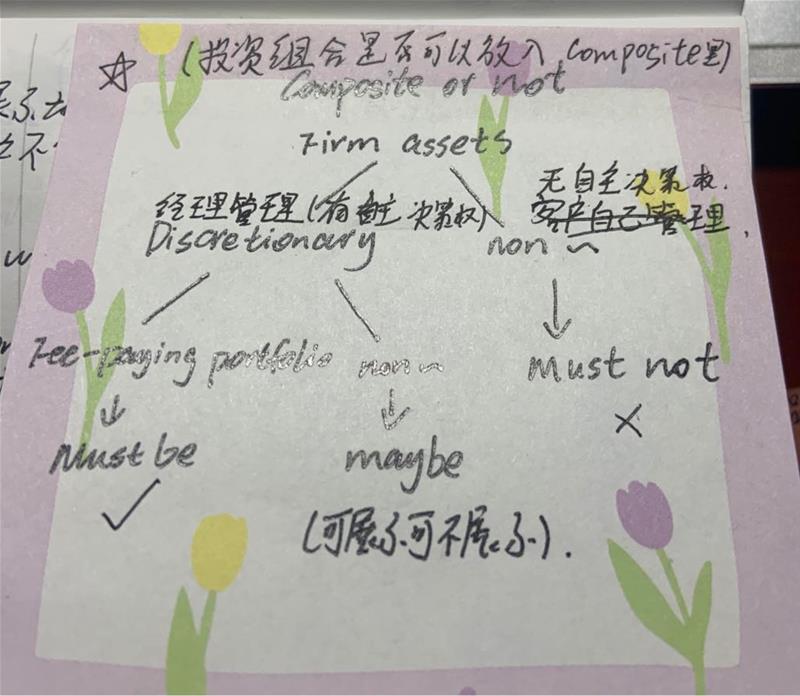 ☆ (投资组合是否可以放入 composite里)
Composite or not
Firm assets
经理管理(有自主决策权)
无自主决策权.
客户自己管理.
Discretionary
non ~
Fee-paying portfolio
non ~
Must not
Must be
maybe
×
✓
(可展示可不展示).